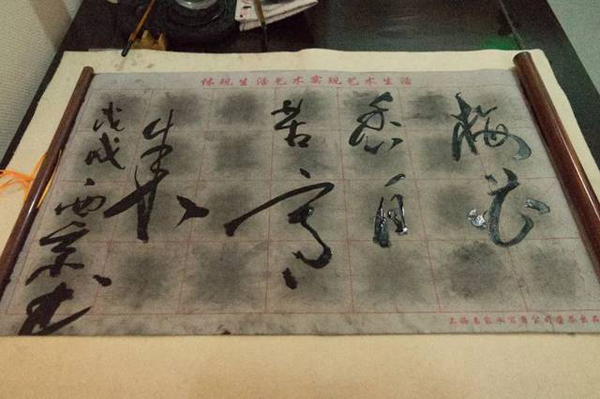 体现生活艺术实现艺术生活
梅花
香自
苦寒
来
戊戌西京书